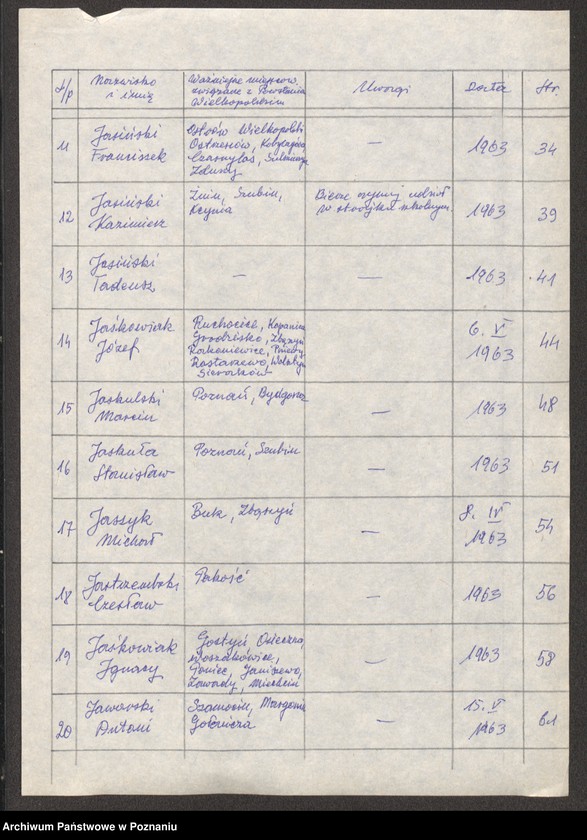 L/p Nazwisko i imię Ważniejsze miejscow. związane z Powstaniem Wielkopolskim Uwagi Data Str.
11 Jasiński Franciszek Ostrów Wielkopolski Ostrzeszów, Kobylagóra, Czarnylas, Zduny — 1963 34
12 Jasiński Kazimierz Żnin, Szubin, Kcynia Bierze czynny udział w strajku szkolnym 1963 39
13 Jasiński Tadeusz — — 1963 41
14 Jaśkowiak Józef Ruchocice, Kopanica Grodzisko, Zbąszyń Rakoniewice, Rostarzewo, Wolsztyn 6. V 1963 44
15 Jaskulski Marcin Poznań, Bydgoszcz — 1963 48
16 Jaskuła Stanisław Poznań, Szubin — 1963 51
17 Jaszyk Michał Buk, Zbąszyń — 8. IV 1963 54
18 Jastrzembski Czesław Pakość — 1963 56
19 Jaśkowiak Ignacy Gostyń, Osieczna, Poniec, Janiszewo, Zawady, — 1963 58
20 Jaworski Antoni Szamocin, Margonin Gołańcza — 15. V 1963 61
Archiwum Państwowe w Poznaniu